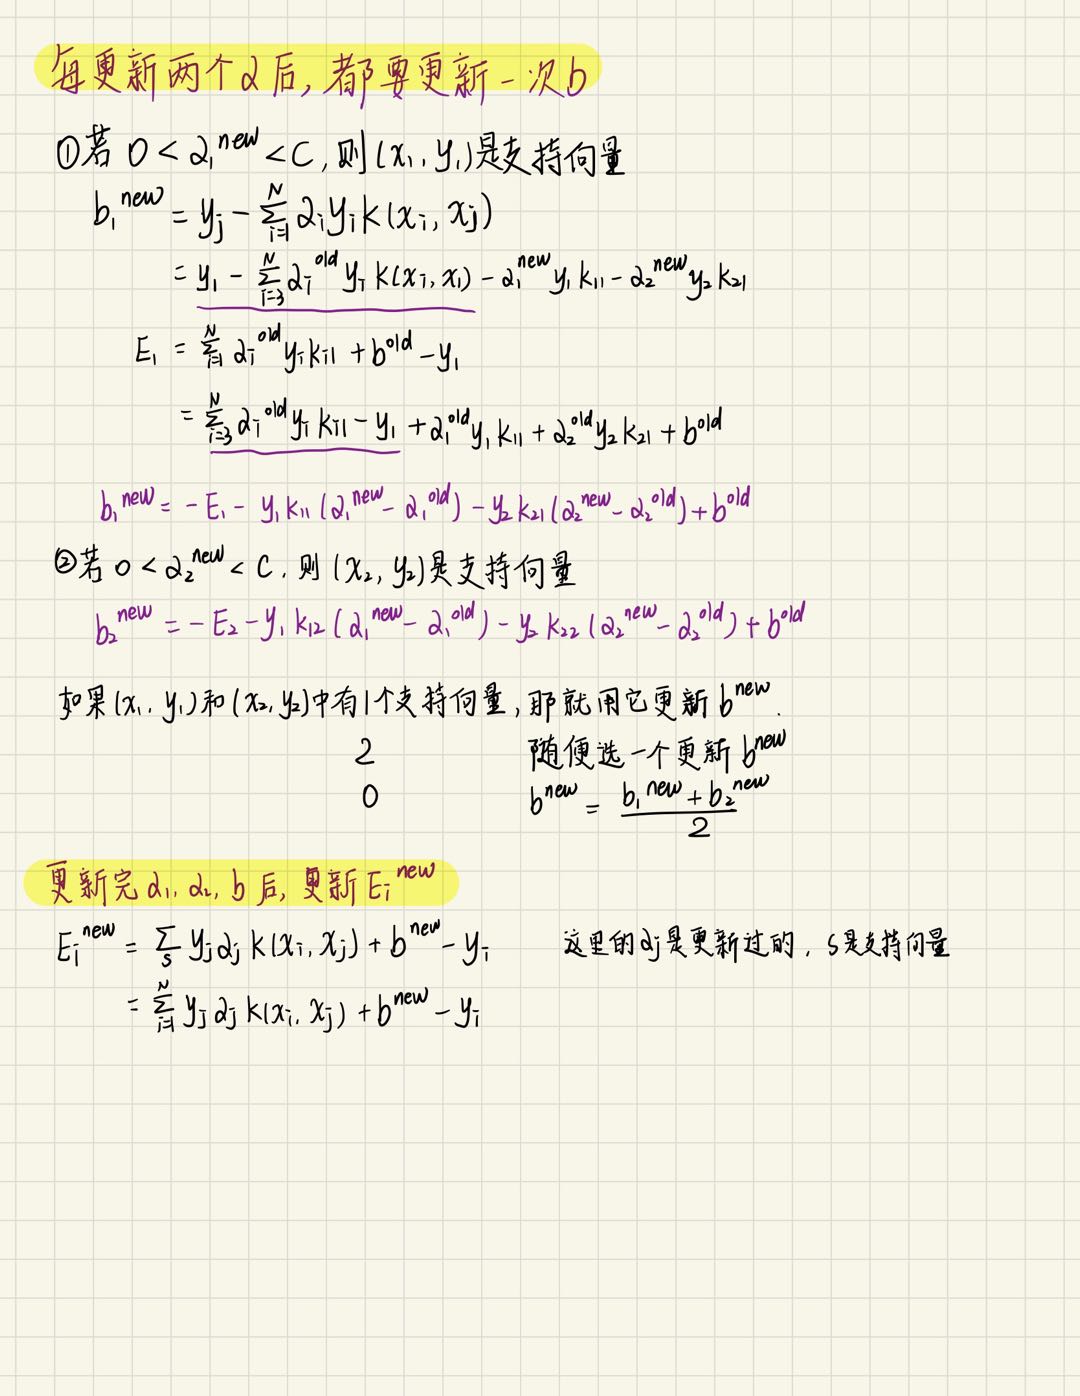 每更新两个α后，都要更新一次b
①若 0 < α₁ⁿᵉʷ < C，则(x₁, y₁)是支持向量
b₁ⁿᵉʷ = yⱼ - Σᵢ₌₁ᴺ αᵢyᵢk(xᵢ, xⱼ)
= y₁ - Σᵢ₌₃ᴺ αᵢᵒˡᵈ yᵢ k(xᵢ, x₁) - α₁ⁿᵉʷ y₁ k₁₁ - α₂ⁿᵉʷ y₂ k₂₁
E₁ = Σᵢ₌₁ᴺ αᵢᵒˡᵈ yᵢ kᵢ₁ + bᵒˡᵈ - y₁
= Σᵢ₌₃ᴺ αᵢᵒˡᵈ yᵢ kᵢ₁ - y₁ + α₁ᵒˡᵈ y₁ k₁₁ + α₂ᵒˡᵈ y₂ k₂₁ + bᵒˡᵈ
b₁ⁿᵉʷ = - E₁ - y₁ k₁₁ (α₁ⁿᵉʷ - α₁ᵒˡᵈ) - y₂ k₂₁ (α₂ⁿᵉʷ - α₂ᵒˡᵈ) + bᵒˡᵈ
②若 0 < α₂ⁿᵉʷ < C，则 (x₂, y₂)是支持向量
b₂ⁿᵉʷ = - E₂ - y₁ k₁₂ (α₁ⁿᵉʷ - α₁ᵒˡᵈ) - y₂ k₂₂ (α₂ⁿᵉʷ - α₂ᵒˡᵈ) + bᵒˡᵈ
如果(x₁, y₁)和(x₂, y₂)中有1个支持向量，那就用它更新bⁿᵉʷ.
2 随便选一个更新bⁿᵉʷ
0 bⁿᵉʷ = (b₁ⁿᵉʷ + b₂ⁿᵉʷ) / 2
更新完α₁, α₂, b后, 更新Eᵢⁿᵉʷ
Eᵢⁿᵉʷ = Σₛ yⱼαⱼ k(xᵢ, xⱼ) + bⁿᵉʷ - yᵢ 这里的αⱼ是更新过的，s是支持向量
= Σᵢ₌₁ᴺ yⱼαⱼ k(xᵢ, xⱼ) + bⁿᵉʷ - yᵢ